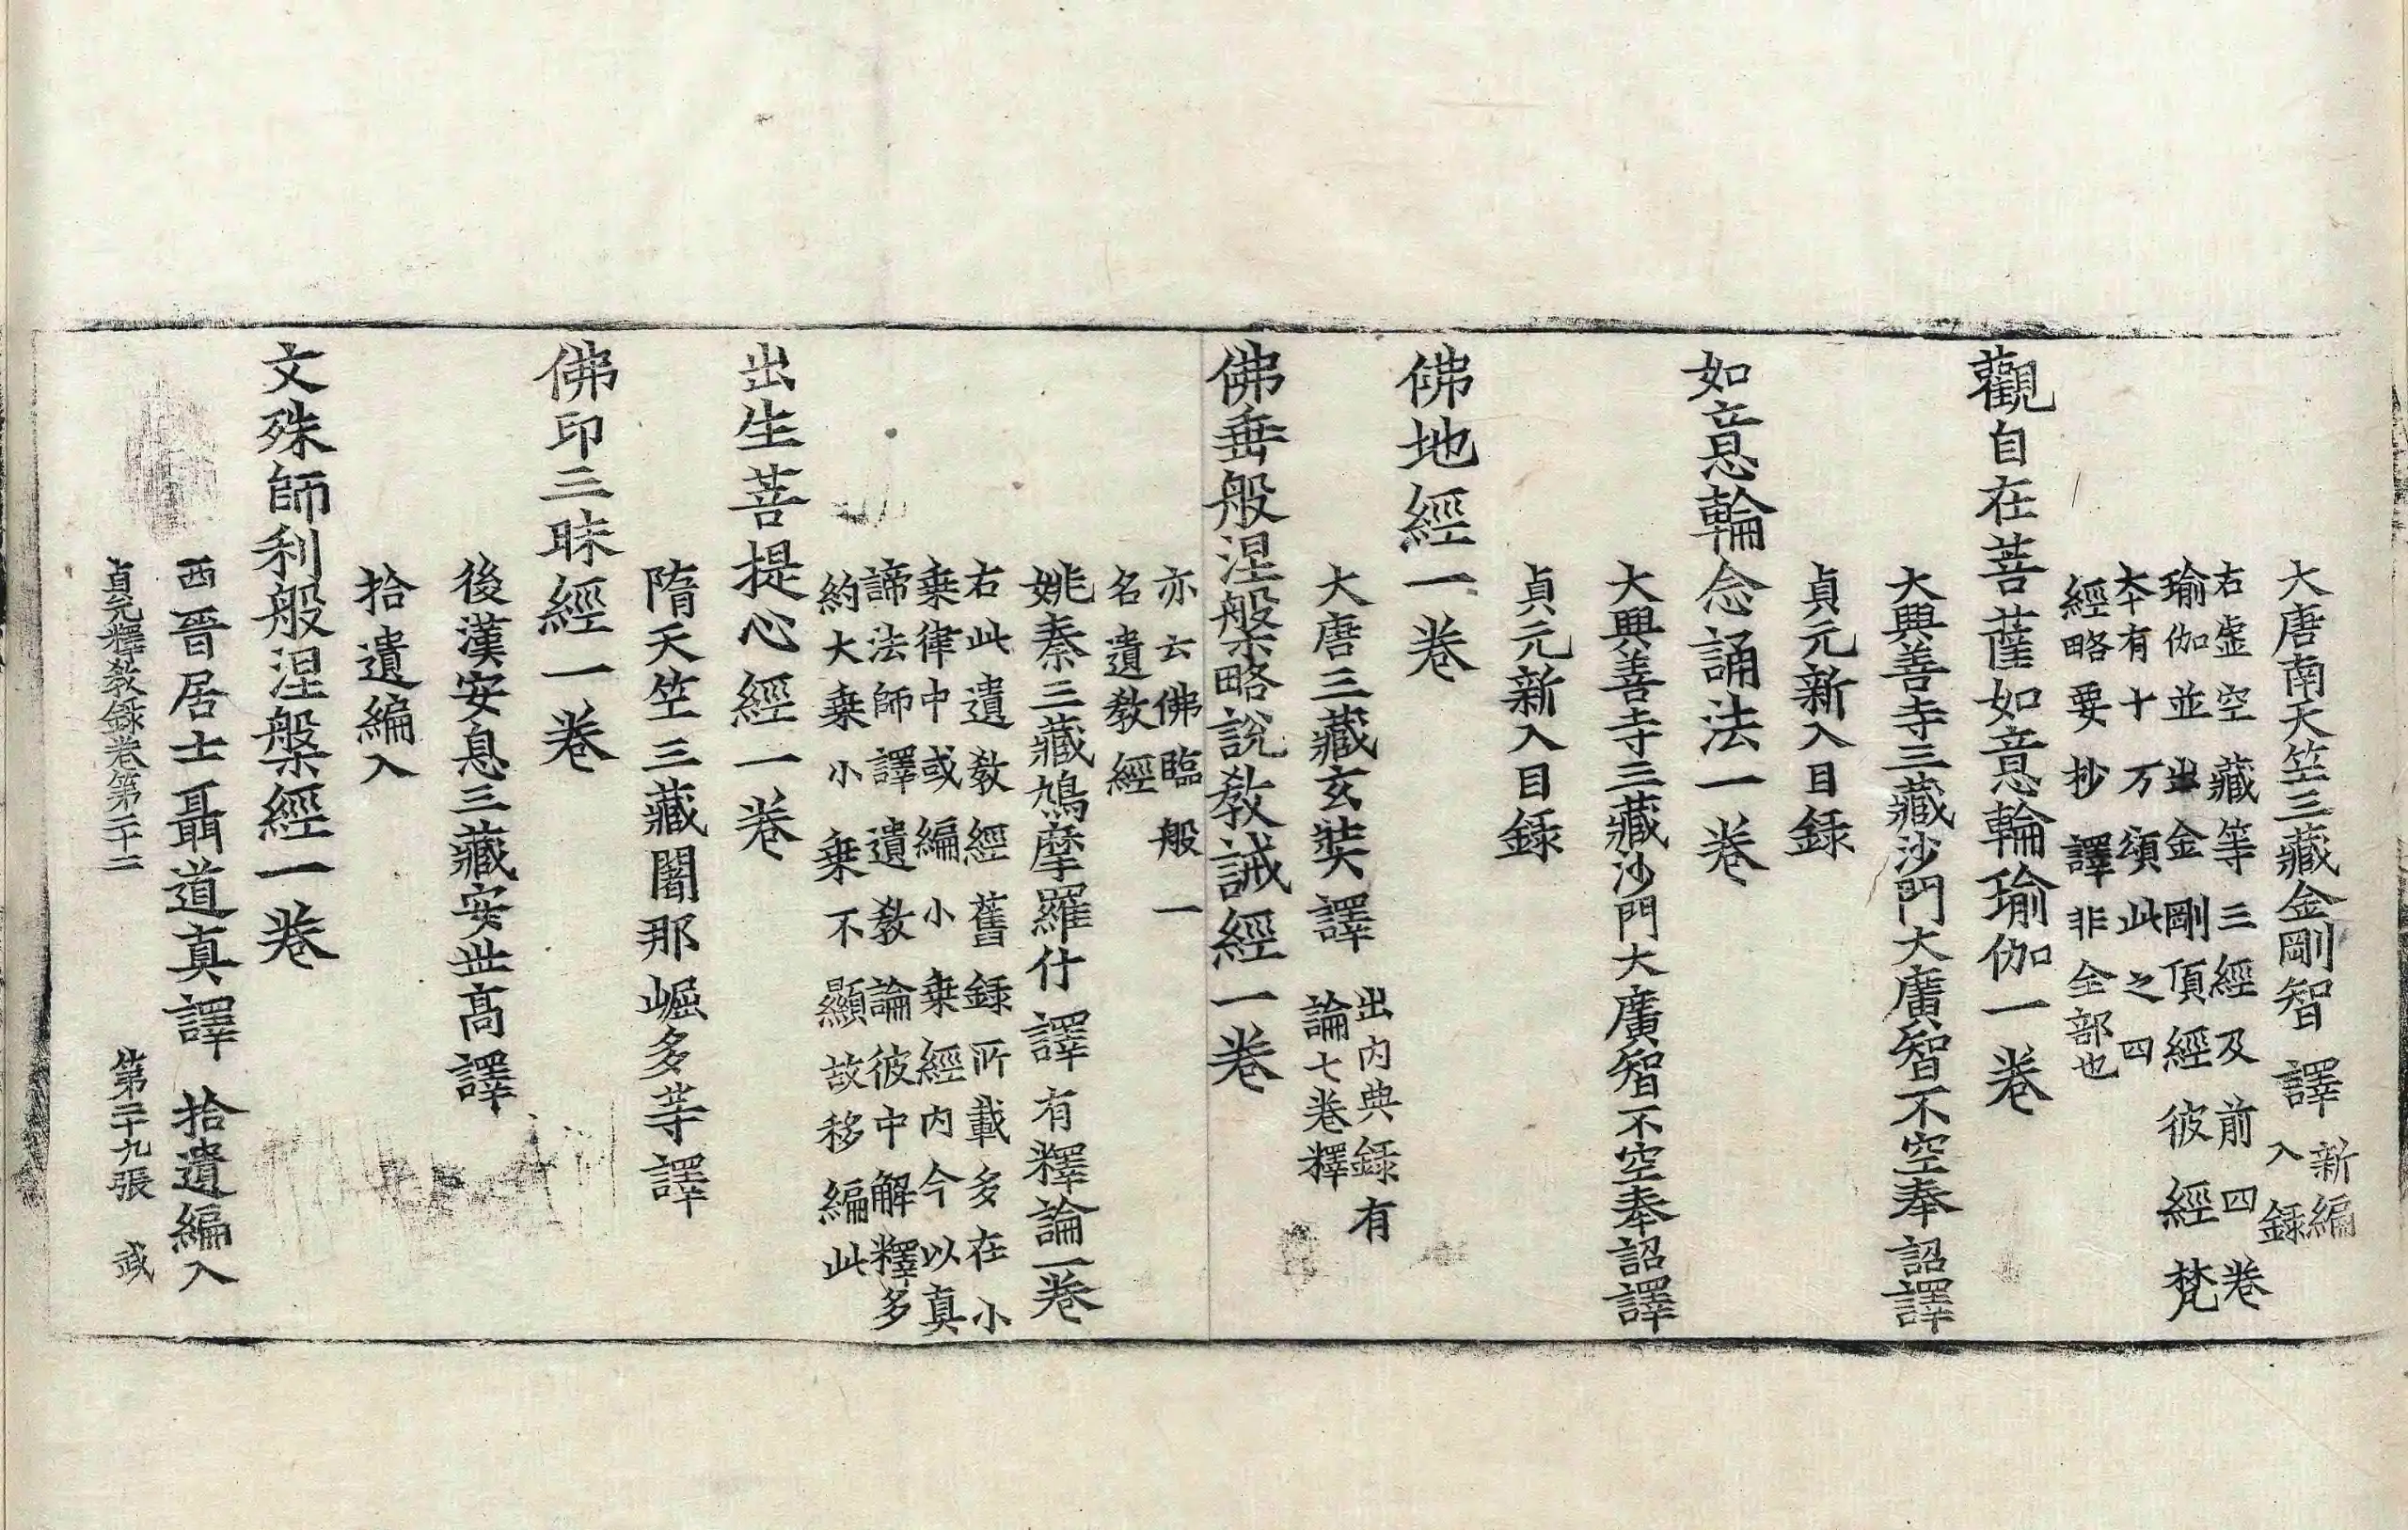 大唐南天竺三藏金剛智譯新編入錄
右虛空藏等三經及前四卷
瑜伽並出金剛頂經彼經梵
本有十万頌此之四
經略要抄譯非全部也
觀自在菩薩如意輪瑜伽一卷
大興善寺三藏沙門大廣智不空奉詔譯
貞元新入目錄
如意輪念誦法一卷
大興善寺三藏沙門大廣智不空奉詔譯
貞元新入目錄
佛地經一卷
大唐三藏玄奘譯出內典錄有論七卷釋
佛垂般涅槃略說教誡經一卷
亦云佛臨般一
名遺教經
姚秦三藏鳩摩羅什譯有釋論一卷
右此遺教經舊錄所載多在小
乗律中或編小乗經內今以真
諦法師譯遺教論彼中解釋多
約大乗小乗不顯故移編此
出生菩提心經一卷
隋天竺三藏闍那崛多等譯
佛印三昧經一卷
後漢安息三藏安世高譯
拾遺編入
文殊師利般涅槃經一卷
西晉居士聶道真譯 拾遺編入
貞元釋教錄卷第二十二 第二十九張 武